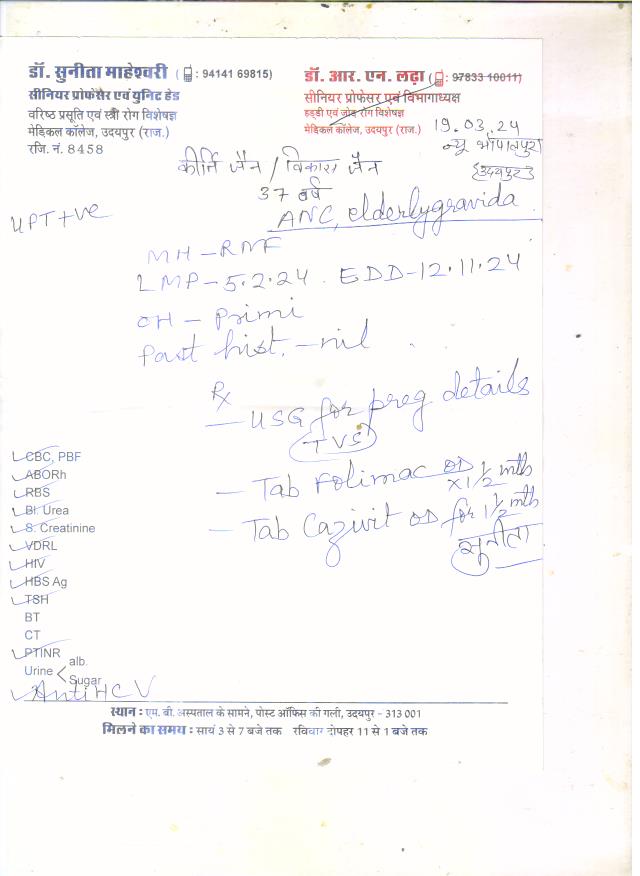 डॉ. सुनीता माहेश्वरी ( : 94141 69815)
सीनियर प्रोफेसर एवं यूनिट हेड
वरिष्ठ प्रसूति एवं स्त्री रोग विशेषज्ञ
मेडिकल कॉलेज, उदयपुर (राज.)
रजि. नं. 8458
डॉ. आर. एन. लढ़ा ( : 97833 10011)
सीनियर प्रोफेसर एवं विभागाध्यक्ष
हड्डी एवं जोड़ रोग विशेषज्ञ
मेडिकल कॉलेज, उदयपुर (राज.)
19.03.24
न्यू भोपालपुरा
उदयपुर
कीर्ति जैन / विकास जैन
37 वर्ष
UPT +ve
ANC, elderlygravida
MH - RNF
LMP - 5.2.24. EDD - 12.11.24
OH - Primi
Past hist. - nil
Rx
- USG for preg details
(TVS)
- Tab Folimac OD x 1 1/2 mth
- Tab Cazivit OD for 1 1/2 mth
सुनीता
CBC, PBF
ABORh
RBS
Bl. Urea
S. Creatinine
VDRL
HIV
HBS Ag
TSH
BT
CT
PTINR
Urine < alb.
Sugar
Anti HCV
स्थान : एम. बी. अस्पताल के सामने, पोस्ट ऑफिस की गली, उदयपुर - 313 001
मिलने का समय : सायं 3 से 7 बजे तक रविवार दोपहर 11 से 1 बजे तक